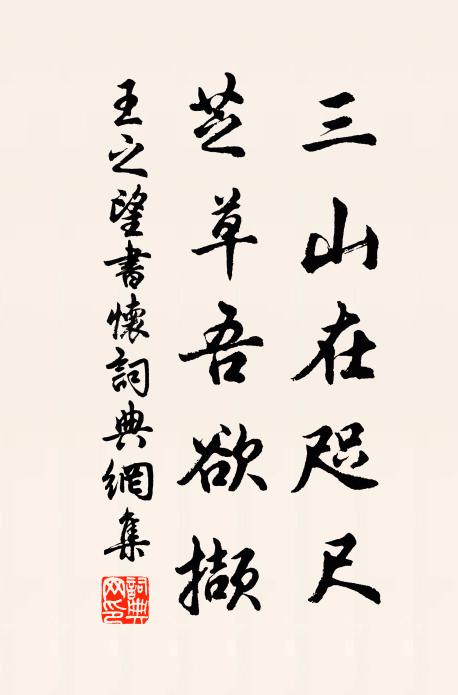 三山在咫尺
芝草吾欲擷
王之望書懷詞典網集
詞典網印